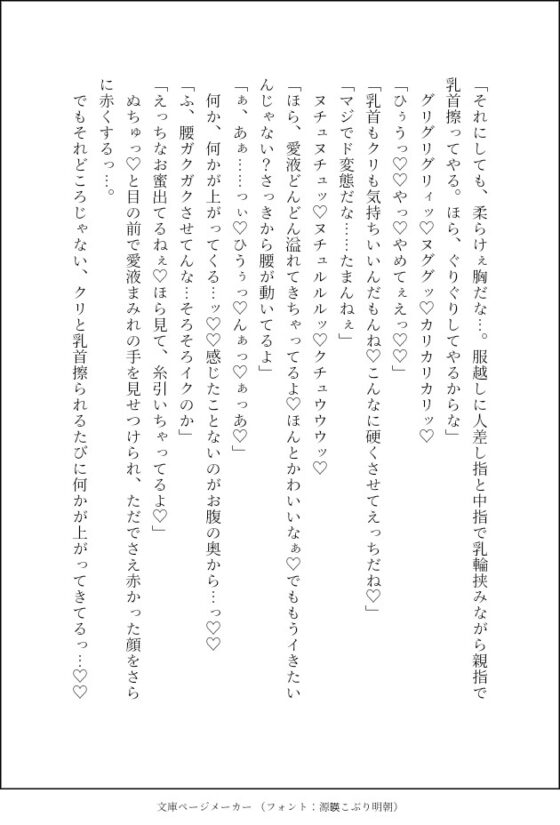 「それにしても、柔らけぇ胸だな…。服越しに人差し指と中指で乳輪挟みながら親指で
乳首擦ってやる。ほら、ぐりぐりしてやるからな」
グリグリグリィッ♡ヌググッ♡カリカリカリッ♡
「ひぅうっ♡♡やっ♡やめてぇえっ♡♡」
「乳首もクリも気持ちいいんだもんね♡こんなに硬くさせてえっちだね♡」
「マジでド変態だな……たまんねぇ」
ヌチュヌチュッ♡ヌチュルルルッ♡クチュウウウッ♡
「ほら、愛液どんどん溢れてきちゃってるよ♡ほんとかわいいなぁ♡でももうイきたい
んじゃない？さっきから腰が動いてるよ」
「ぁ、あぁ……っぃ♡ひうぅっ♡んぁっ♡ぁっあ♡」
何か、何かが上がってくる…ッ♡♡感じたことないのがお腹の奥から…っ♡♡
「ふ、腰ガクガクさせてんな…そろそろイクのか」
「えっちなお蜜出てるねぇ♡ほら見て、糸引いちゃってるよ♡」
ぬちゅっ♡と目の前で愛液まみれの手を見せつけられ、ただでさえ赤かった顔をさら
に赤くするっ…。
でもそれどころじゃない、クリと乳首擦られるたびに何かが上がってきてるっ…♡♡
文庫ページメーカー（フォント：源暎こぶり明朝）